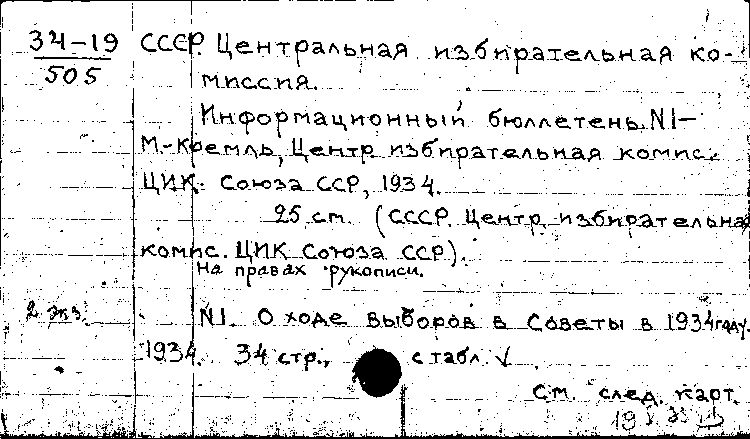 34-19 СССР. Центральная избирательная ко-
505 миссия.
Информационный бюллетень. N1-
М.-Кремль, Центр избирательная комис.
ЦИК. Союза ССР, 1934.
25 см. (СССР. Центр. избирательная
комис. ЦИК Союза ССР).
На правах рукописи.
2 экз. N1. О ходе выборов в Советы в 1934 году.
1934. 34 стр., с табл. √
См. след. карт.